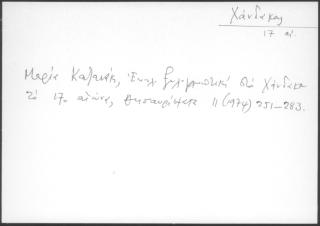 Χάνδακας
17 αι.
Μαρία Καζανάκη, ζωγραφική στο Χάνδακα
το 17ο αιώνα, Θησαυρίσματα 11 (1974) 251-283.